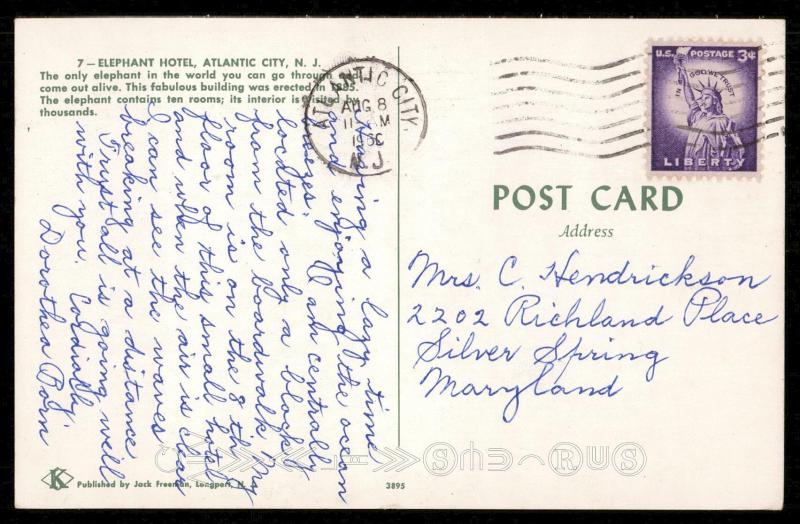 7 — ELEPHANT HOTEL, ATLANTIC CITY, N. J.
The only elephant in the world you can go through and
come out alive. This fabulous building was erected in 1885.
The elephant contains ten rooms; its interior is visited by
thousands.
Having a lazy time
and enjoying the ocean
breezes. I am centrally
located only a block
from the boardwalk. My
room is on the 8th
floor of this small hotel
and when the air is clear
I can see the waves
breaking at a distance
Trust all is going well
with you. Cordially,
Dorothea Born
K
Published by Jack Freeman, Longport, N.
3895
ATLANTIC CITY,
AUG 8
11 M
N J
U.S. POSTAGE 3¢
IN GOD WE TRUST
LIBERTY
POST CARD
Address
Mrs. C. Hendrickson
2202 Richland Place
Silver Spring
Maryland